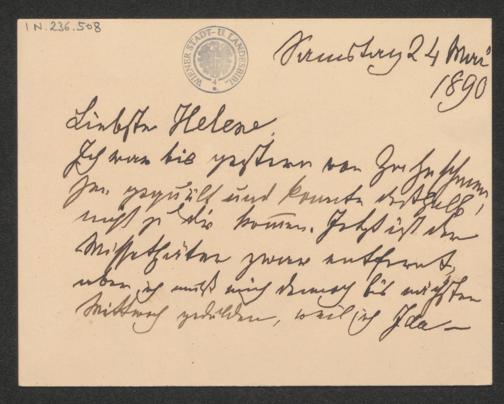 I N. 236.508
WIENER STADT- U. LANDESBIBL.
Samstag 24 Mai
1890
Liebste Helene,
Ich war bis gestern von Zahnschmer-
zen gequält und konnte deshalb
nicht zu dir kommen. Jetzt ist der
Missethäter zwar entfernt,
aber ich muß mich dennoch bis nächsten
Mittwoch gedulden, weil ich Ida –